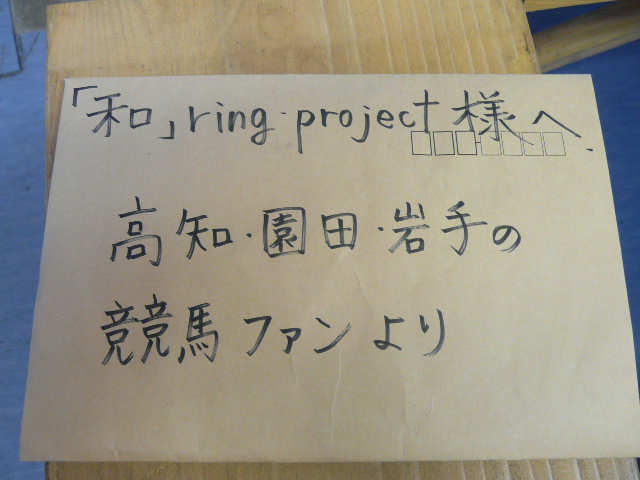 「和」ring・project 様へ
高知・園田・岩手の
競馬ファンより